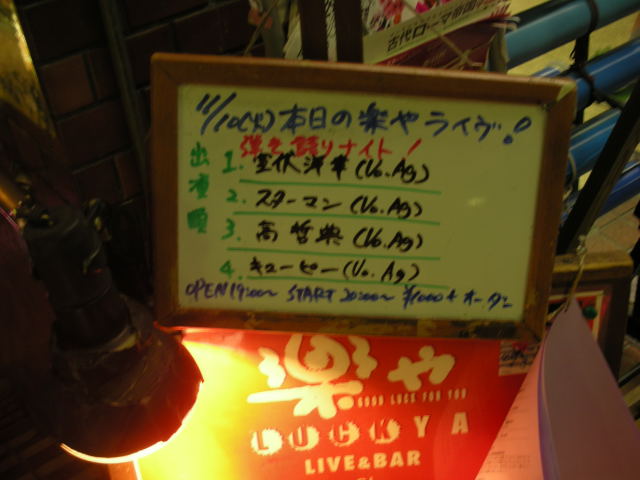 古代ローマ帝国
11/10(火)本日の楽やライヴ!
弾き語りナイト!
出演順
1. 室伏洋幸(Vo.Ag)
2. スターマン(Vo.Ag)
3. 高哲典(Vo.Ag)
4. キューピー(Vo.Ag)
OPEN19:00〜 START20:00〜 ¥1000+オーダー
楽や
GOOD LUCK FOR YOU
LUCKYA
LIVE&BAR